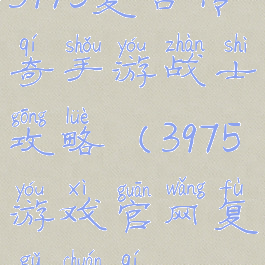 3975复古传
qí shǒu yóu zhàn shì
奇手游战士
gōng lüè
攻略 (3975
yóu xì guān wǎng fù
游戏官网复
gǔ chuán qí